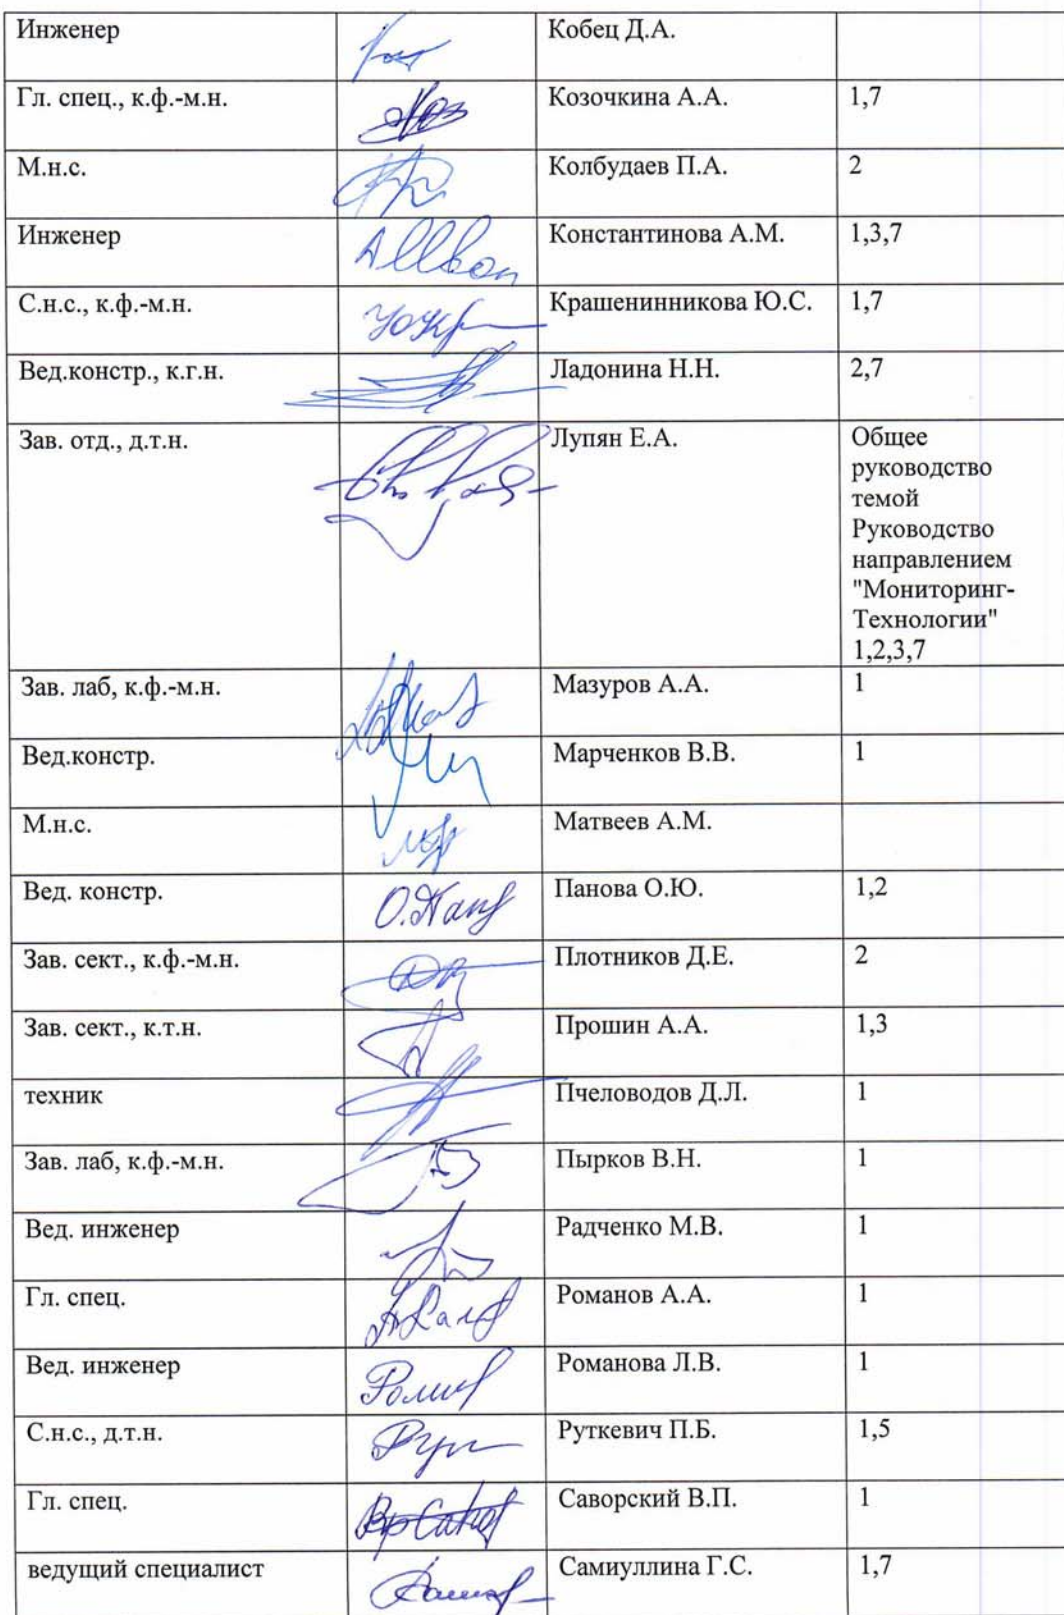 Инженер Кобец Д.А.
Гл. спец., к.ф.-м.н. Козочкина А.А. 1,7
М.н.с. Колбудаев П.А. 2
Инженер Константинова А.М. 1,3,7
С.н.с., к.ф.-м.н. Крашенинникова Ю.С. 1,7
Вед.констр., к.г.н. Ладонина Н.Н. 2,7
Зав. отд., д.т.н. Лупян Е.А. Общее
руководство
темой
Руководство
направлением
"Мониторинг-
Технологии"
1,2,3,7
Зав. лаб, к.ф.-м.н. Мазуров А.А. 1
Вед.констр. Марченков В.В. 1
М.н.с. Матвеев А.М.
Вед. констр. Панова О.Ю. 1,2
Зав. сект., к.ф.-м.н. Плотников Д.Е. 2
Зав. сект., к.т.н. Прошин А.А. 1,3
техник Пчеловодов Д.Л. 1
Зав. лаб, к.ф.-м.н. Пырков В.Н. 1
Вед. инженер Радченко М.В. 1
Гл. спец. Романов А.А. 1
Вед. инженер Романова Л.В. 1
С.н.с., д.т.н. Руткевич П.Б. 1,5
Гл. спец. Саворский В.П. 1
ведущий специалист Самиуллина Г.С. 1,7